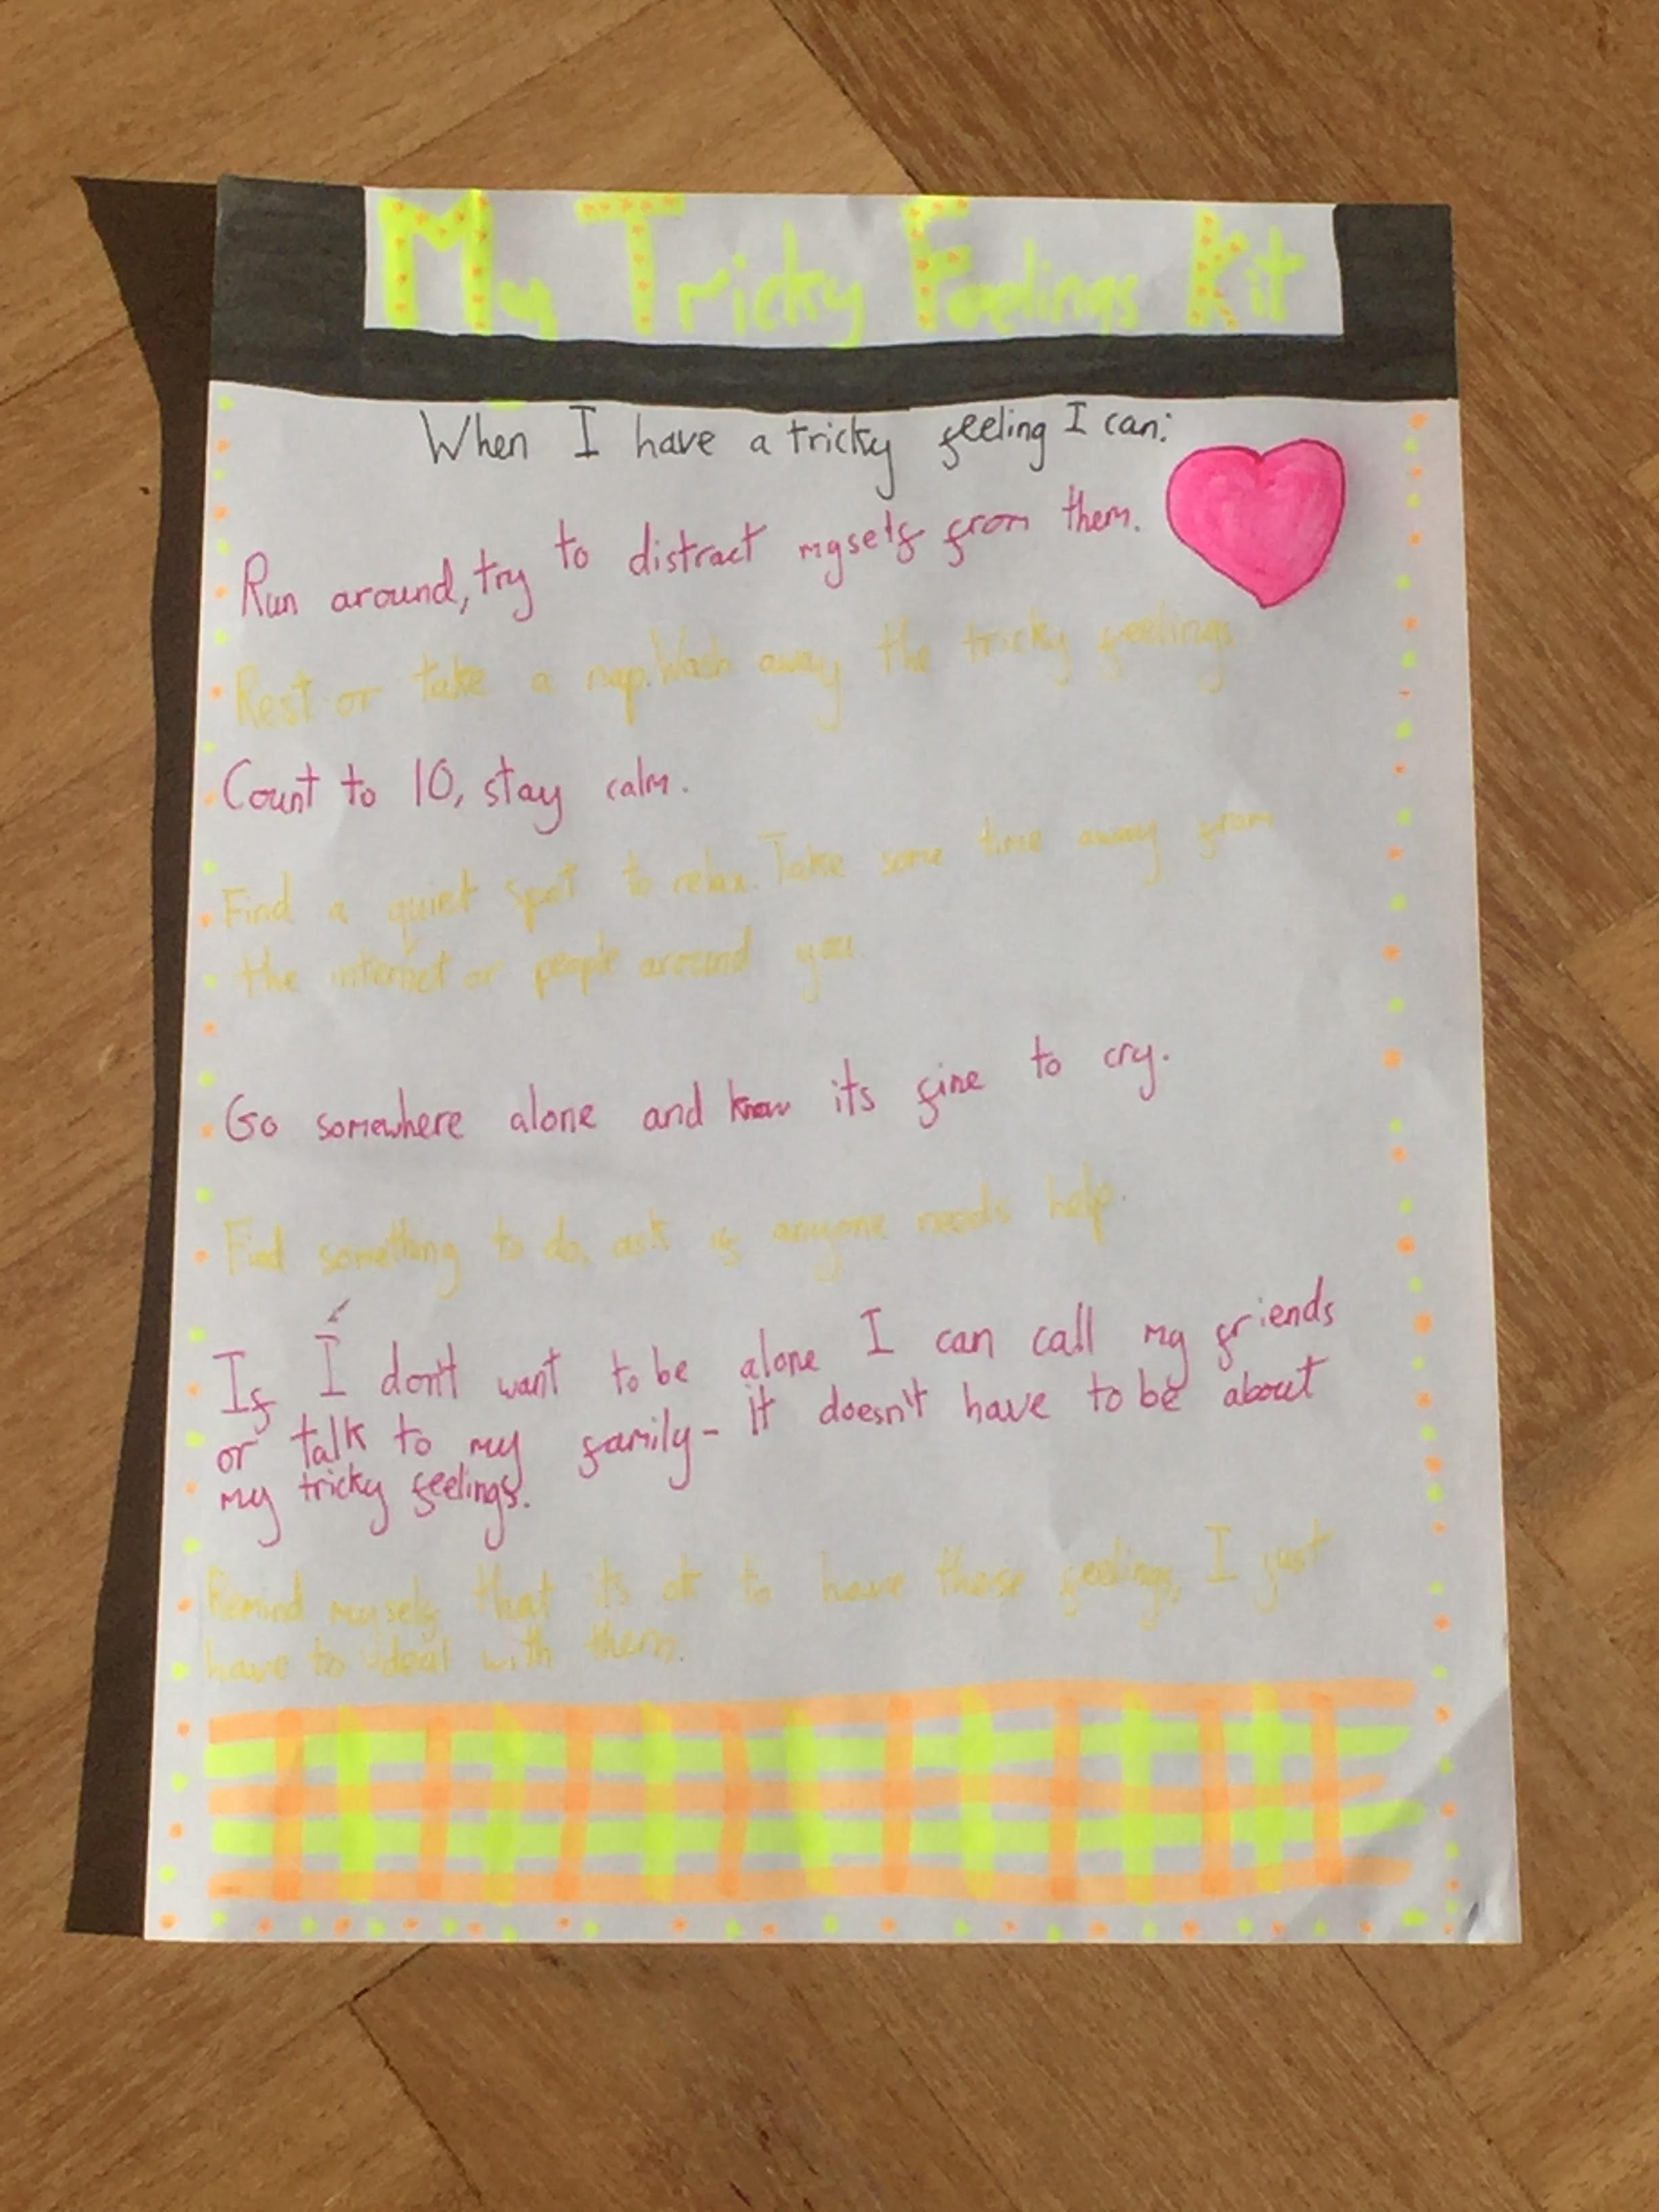 My Tricky Feelings Kit
When I have a tricky feeling I can:
Run around, try to distract myself from them.
Rest or take a nap. Wash away the tricky feelings
Count to 10, stay calm.
Find a quiet spot to relax. Take some time away from
the internet or people around you
Go somewhere alone and know its fine to cry.
Find something to do, ask if anyone needs help.
If I don't want to be alone I can call my friends
or talk to my family - it doesn't have to be about
my tricky feelings.
Remind myself that its ok to have these feelings, I just
have to deal with them.